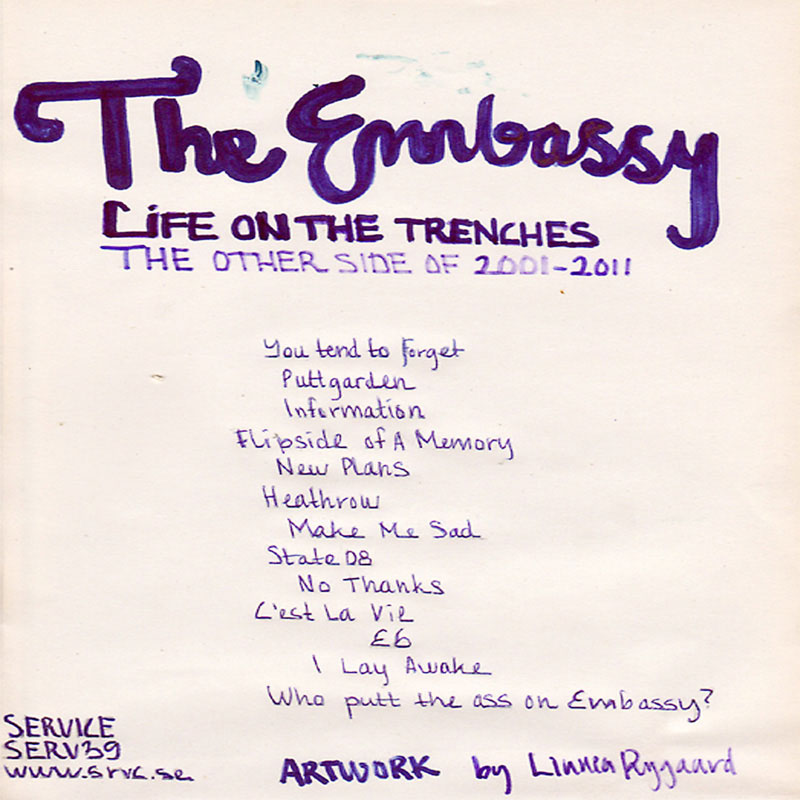 The Embassy
LIFE ON THE TRENCHES
THE OTHER SIDE OF 2001-2011
You tend to Forget
Puttgarden
Information
Flipside of A Memory
New Plans
Heathrow
Make Me Sad
State 08
No Thanks
C'est La Vie
£6
I Lay Awake
Who putt the ass on Embassy?
SERVICE
SERV39
www.srvc.se
ARTWORK by Linnea Rygaard